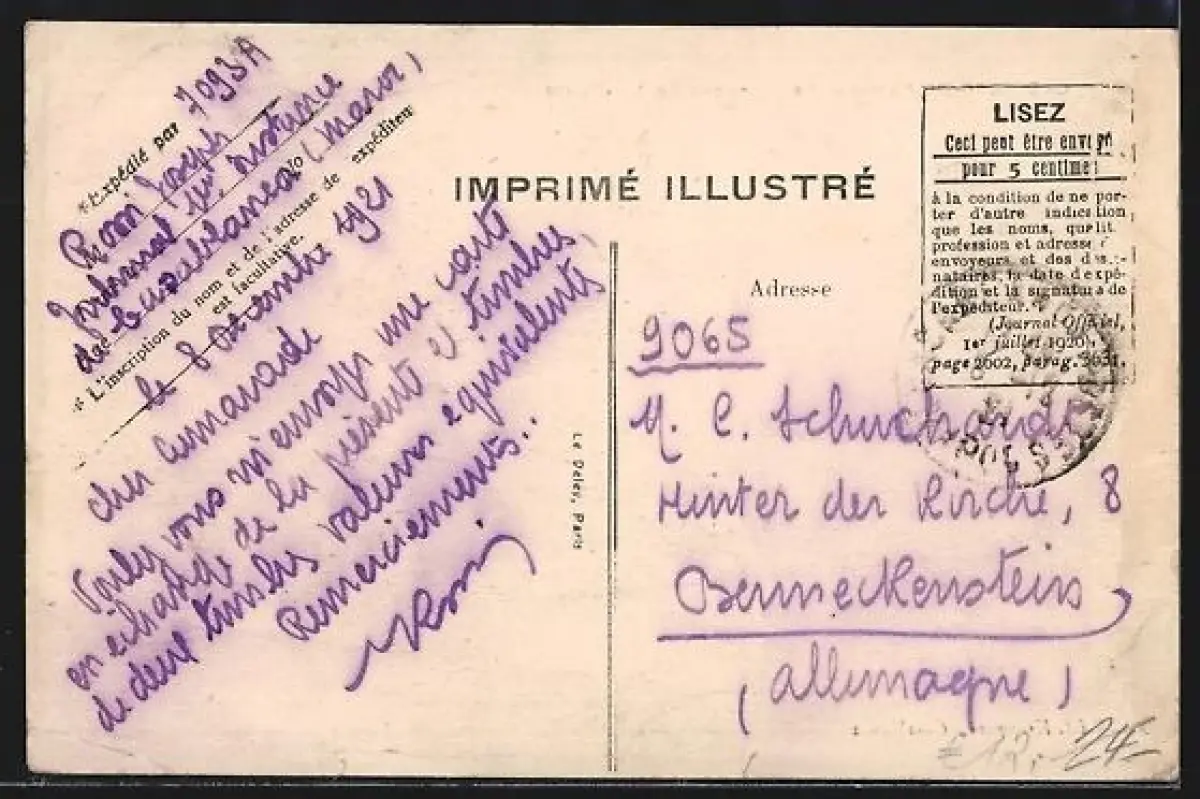 7093A
"Expédié par
Rossi Joseph
Tribunal 1re instance
de Casablanca (Maroc)
"L'inscription du nom et de l'adresse de l'expéditeur
est facultative.
le 8 décembre 1921
Cher Camarade
Voulez vous m'envoyer une carte
en échange de la présente et timbres,
de deux timbres valeurs equivalents
Remerciements..
Rossi
Le Deley, Paris
IMPRIMÉ ILLUSTRÉ
LISEZ
Ceci peut être envoyé
pour 5 centimes
à la condition de ne por-
ter d'autre indication
que les noms, qualité
profession et adresse
envoyeurs et des des-
nataires, la date d'expé-
dition et la signature de
l'expéditeur."
(Journal Officiel,
1er juillet 1920,
page 2602, parag. 3631.
Adresse
9065
M. C. Schuchardt
Hinter der Kirche, 8
Benneckenstein
(Allemagne)
12.- 24.-